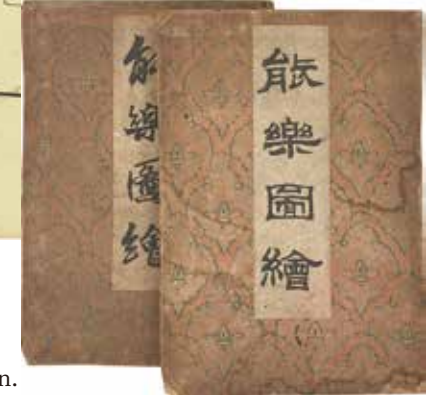 能樂圖繪
能樂圖繪
n.